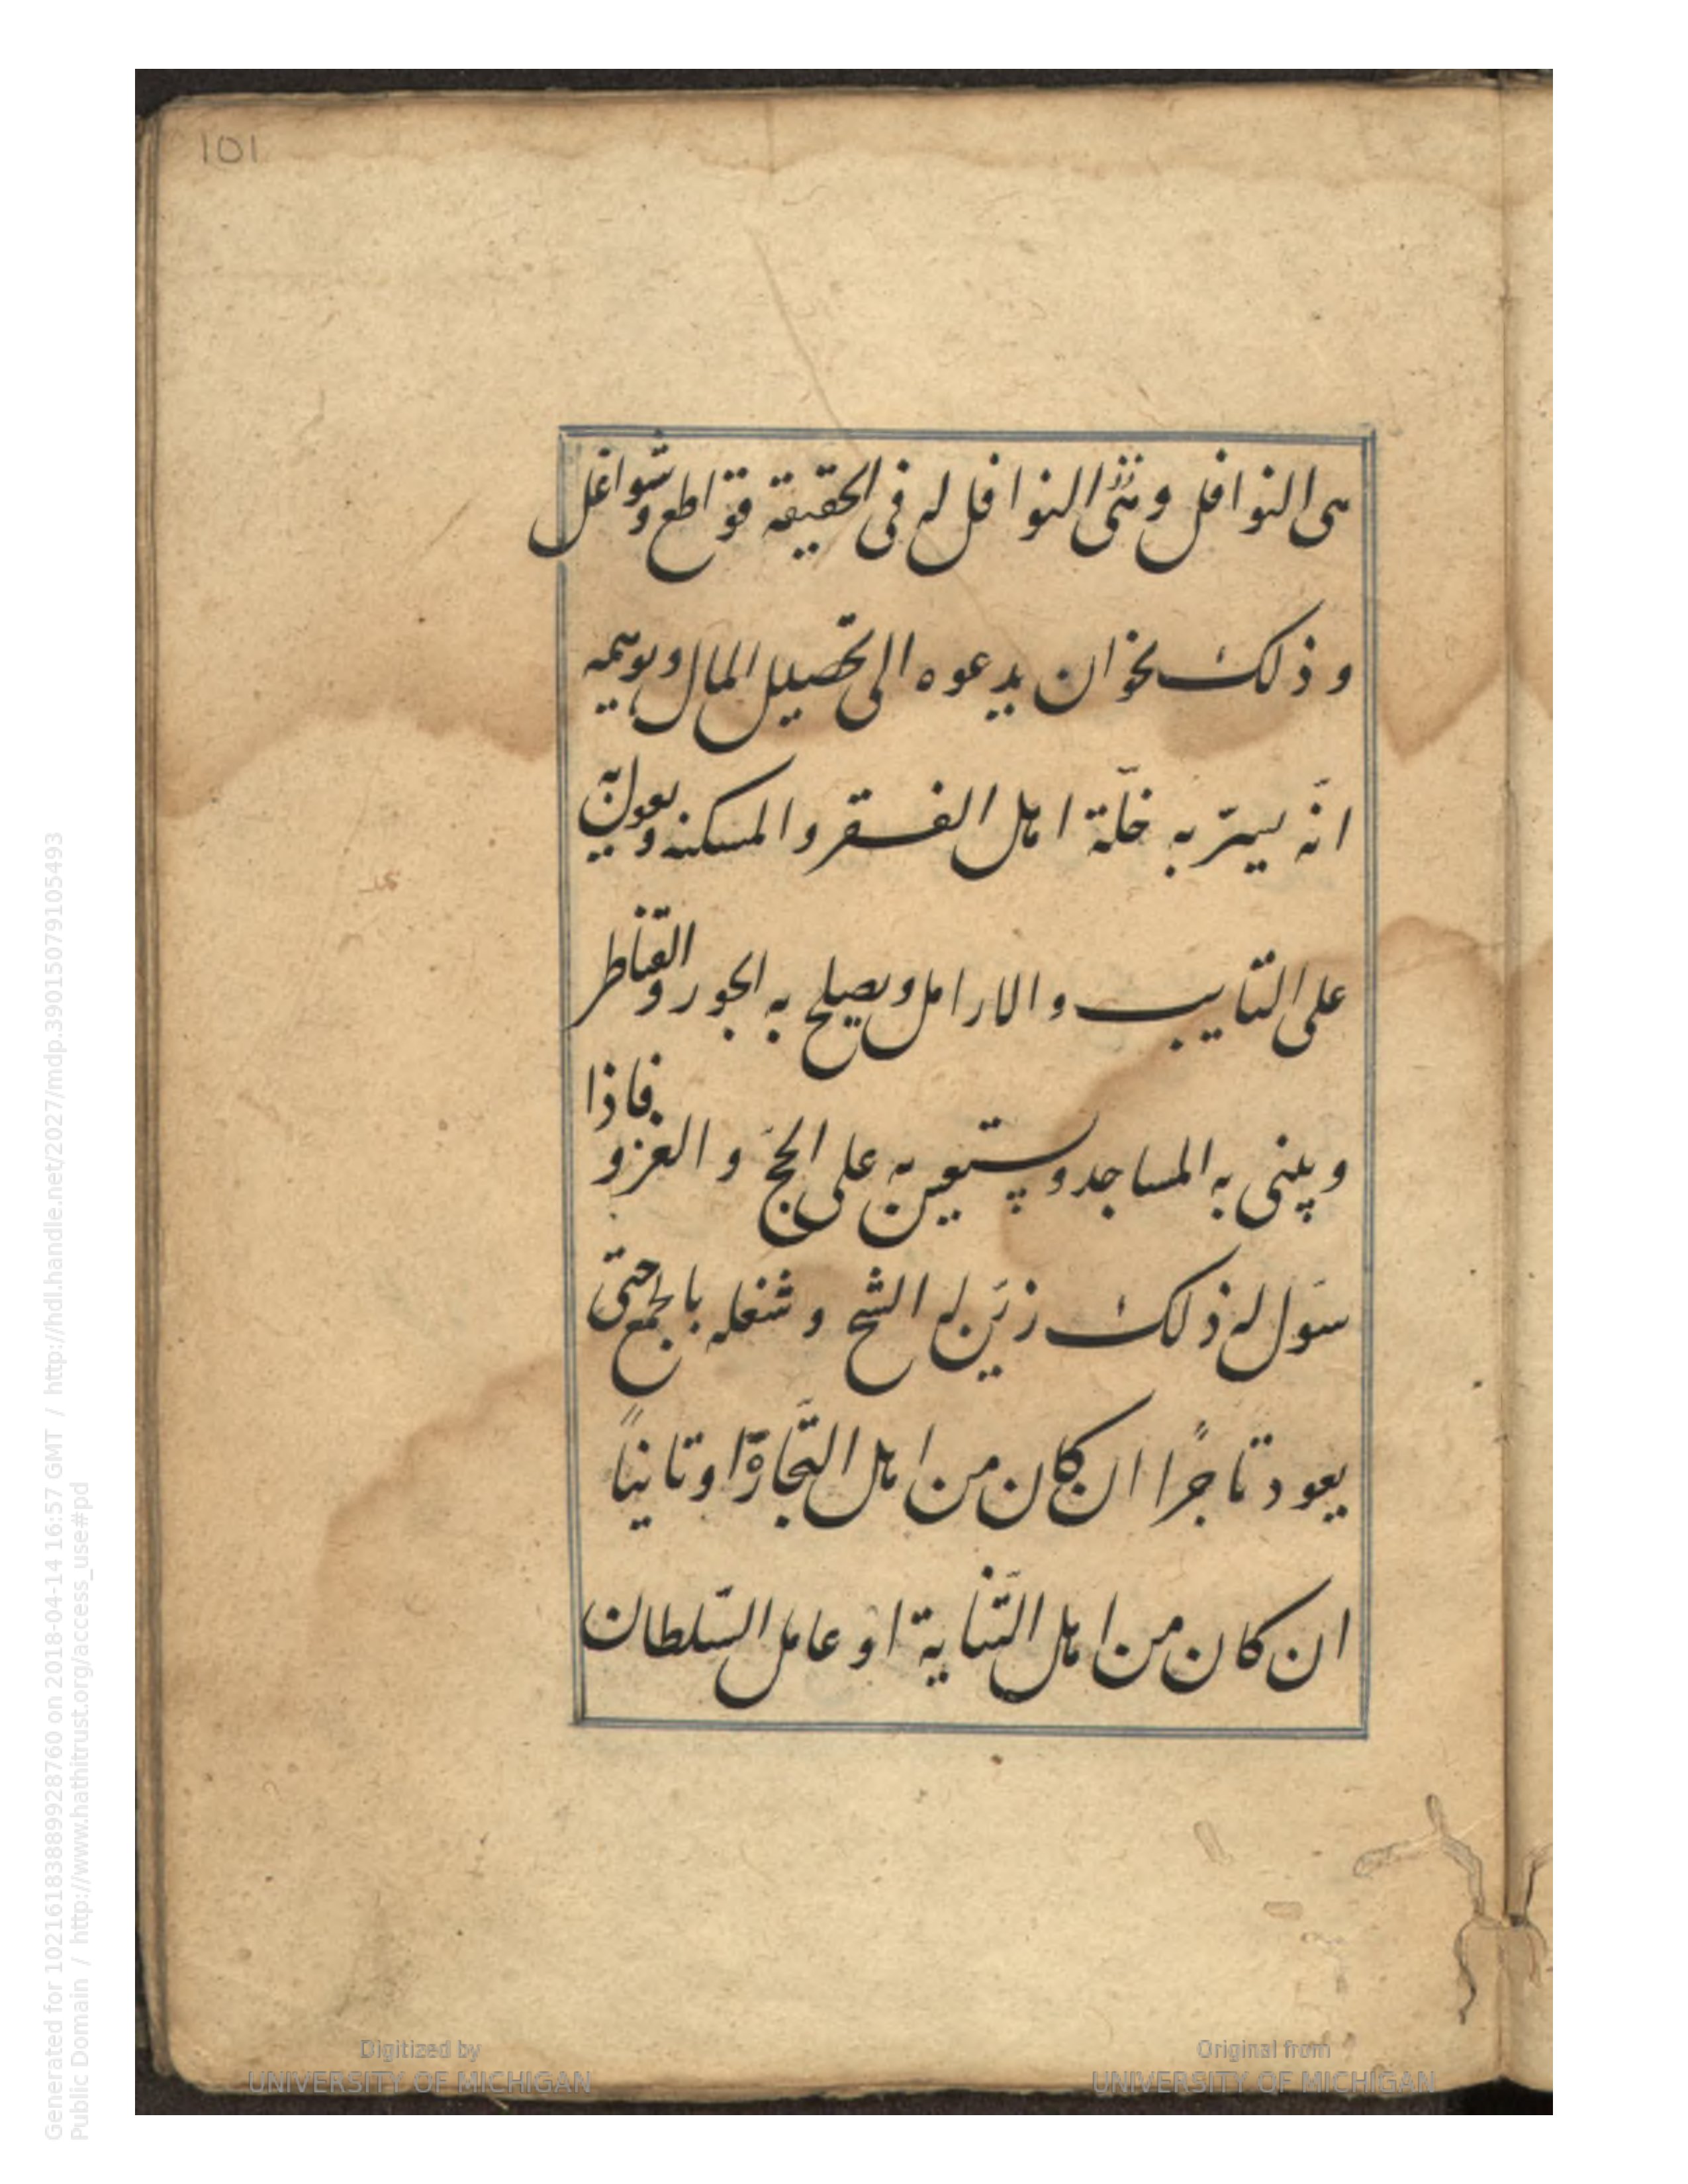 101
هى النوافل وننثى النوافل له فى الحقيقة قواطع وشواغل
وذلك نحو ان يدعوه الى تحصيل المال ويوهمه
انّه يسرّ به خلّة اهل الفقر والمسكنه ويعول به
على التايب والارامل ويصلح به الجور والقناطر
ويبنى به المساجد ويستعين به على الحجّ والغزو فاذا
سوّل له ذلك زيّن له الشح وشغله بالجمع حتى
يعود تاجرًا ان كان من اهل التّجارة او تانيًا
ان كان من اهل التّناية او عامل السّلطان
Generated for 1021618388998928760 on 2018-04-14 16:57 GMT / http://hdl.handle.net/2027/mdp.39015079105493
Public Domain / http://www.hathitrust.org/access_use#pd
Digitized by
UNIVERSITY OF MICHIGAN
Original from
UNIVERSITY OF MICHIGAN